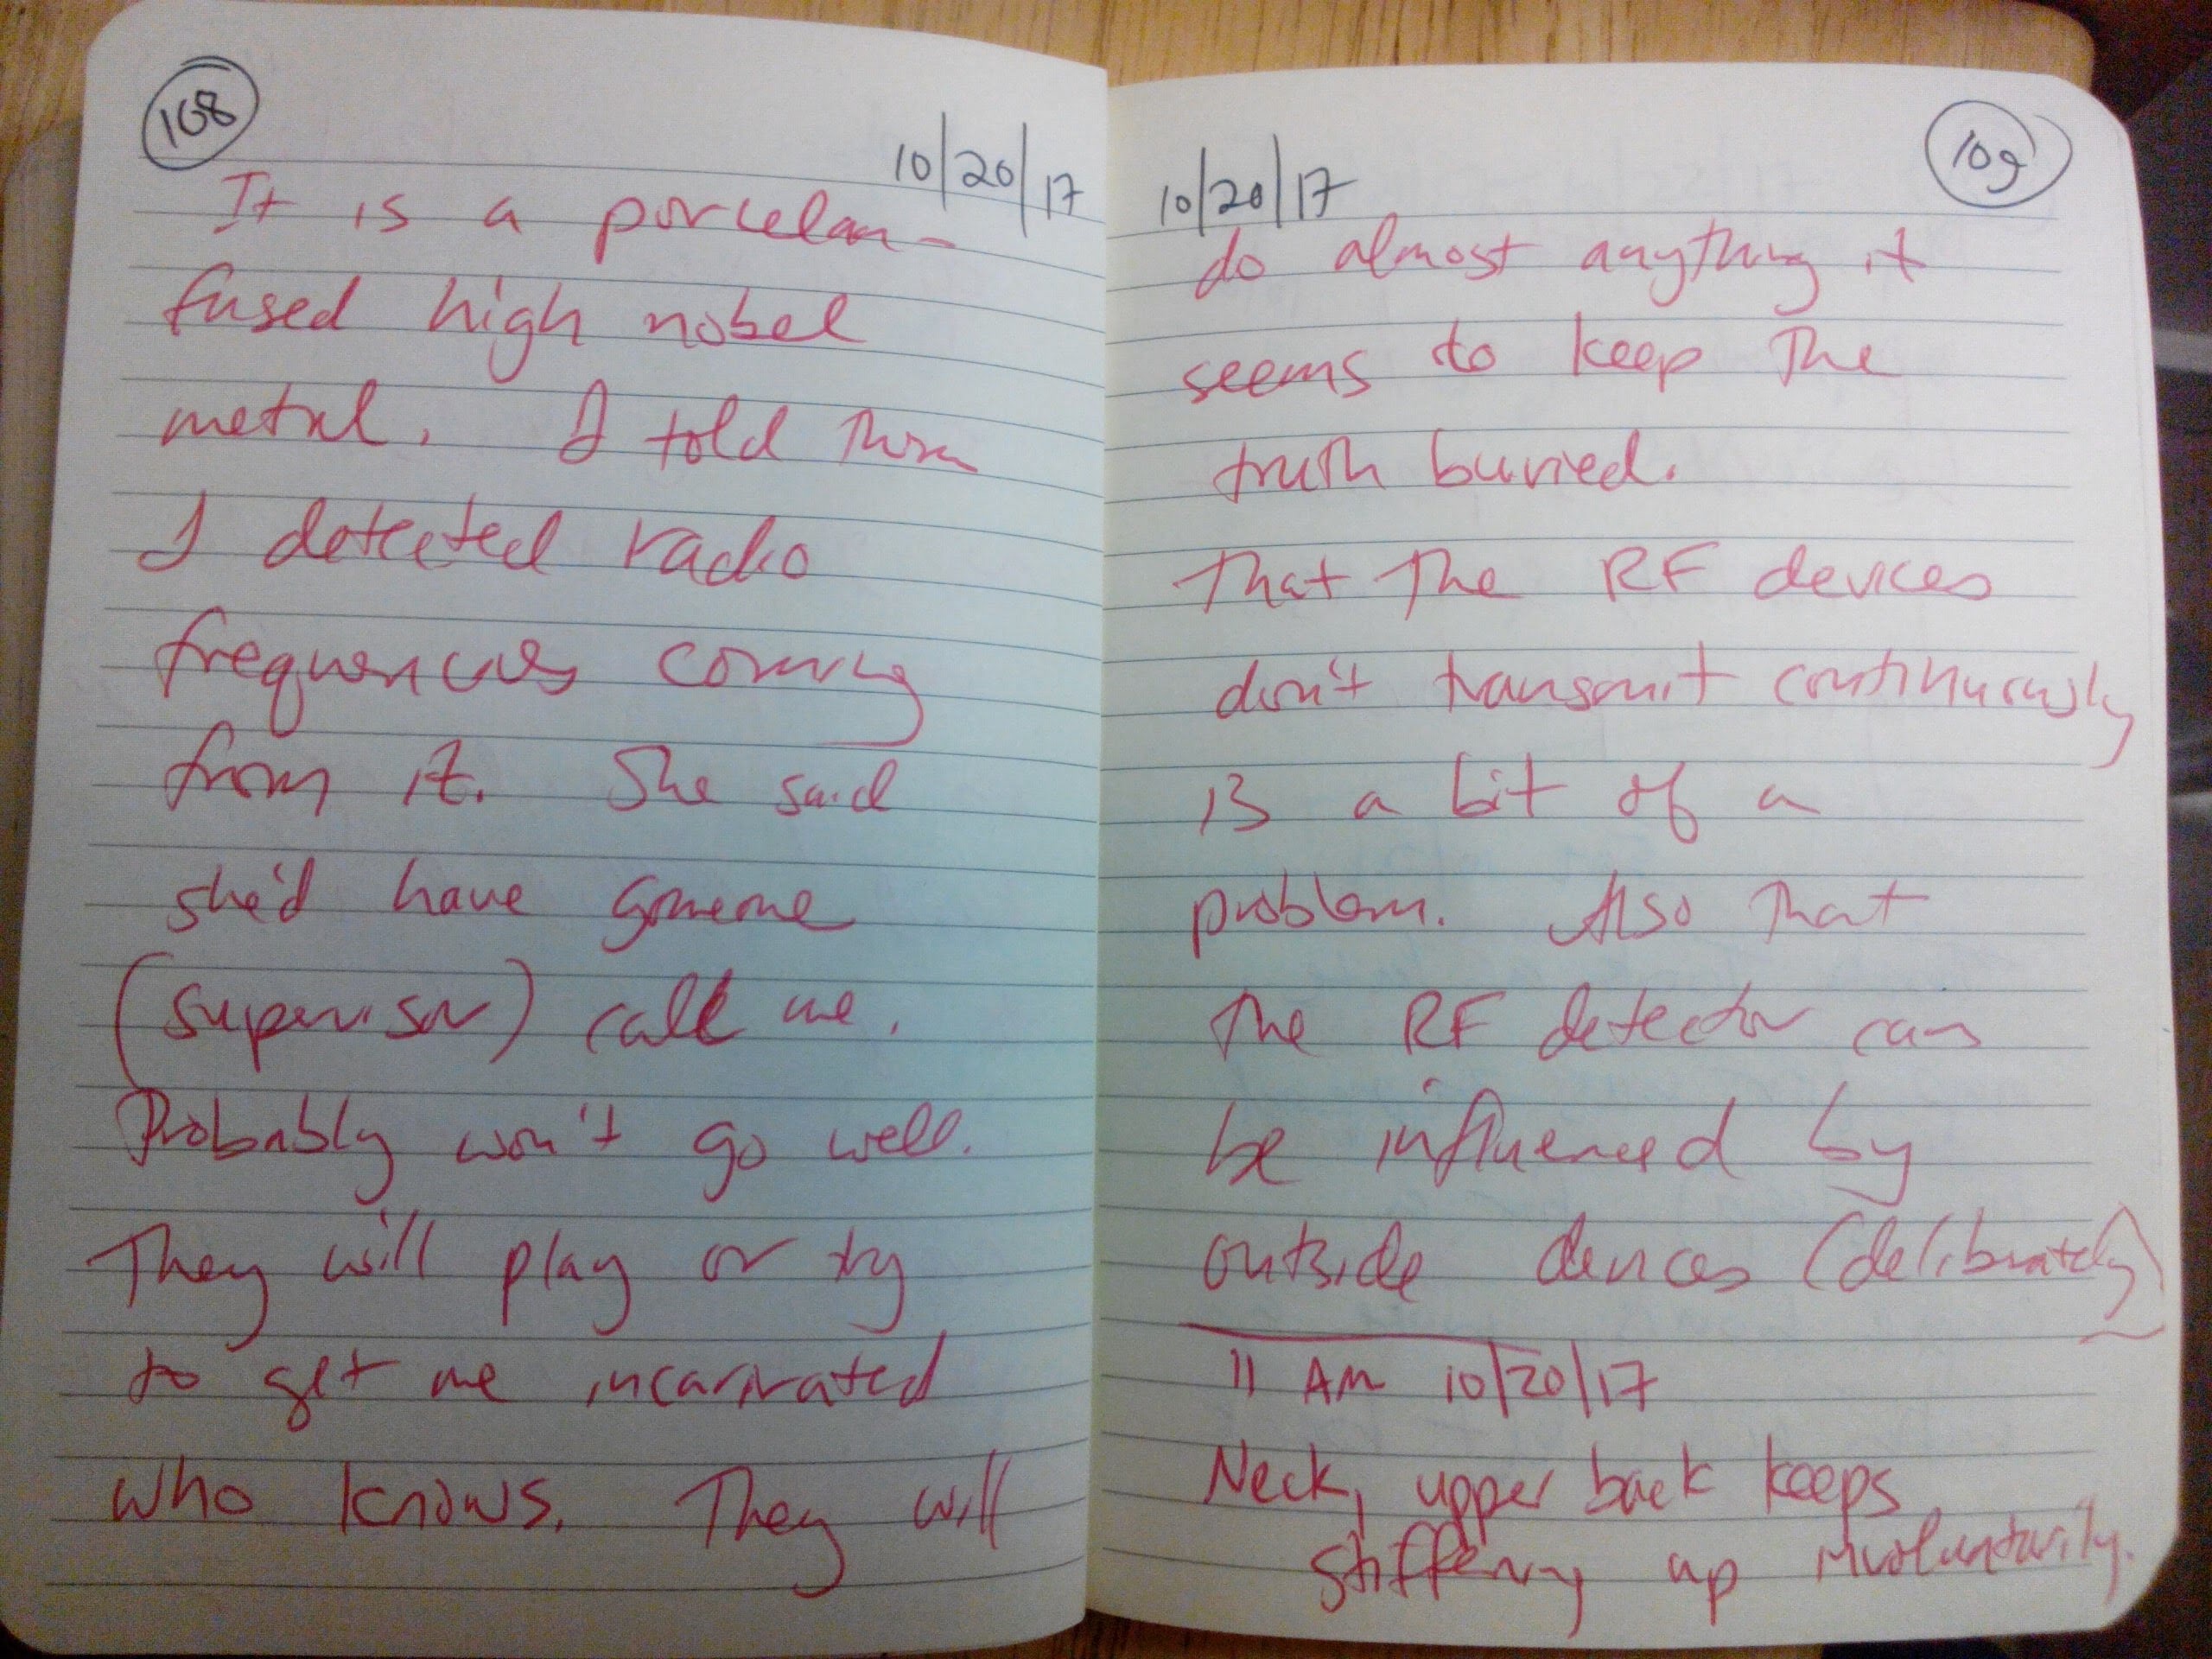 108
10/20/17
It is a porcelan-
fused high nobel
metal. I told them
I detected radio
frequencies coming
from it. She said
she'd have someone
(supervisor) call me.
Probably won't go well.
They will play or try
to get me incarcirated
who knows. They will
109
10/20/17
do almost anything it
seems to keep the
truth buried.
That the RF devices
don't transmit continuously
is a bit of a
problem. Also that
the RF detector can
be influenced by
outside devices (delibrately)
11 AM 10/20/17
Neck, upper back keeps
stiffening up involuntarily.